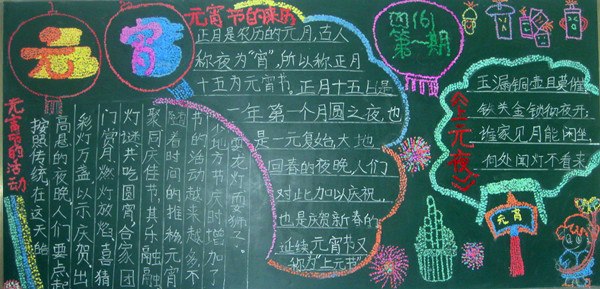 元宵
元宵节的来历
正月是农历的元月,古人
称夜为"宵",所以称正月
十五为元宵节。正月十五是
一年第一个月圆之夜,也
是一元复始,大地
回春的夜晚,人们
对此加以庆祝,
也是庆贺新春的
延续,元宵节又
称为"上元节"
四(6)
第一期
《上元夜》
玉漏铜壶且莫催
铁关金锁彻夜开
谁家见月能闲坐
何处闻灯不看来
元宵
元宵节的活动
按照传统,在这天皓
高悬的夜晚,人们要点起
彩灯万盏,以示庆贺。出
门赏月、燃灯放焰、喜猜
灯谜、共吃圆宵,合家团
聚、同庆佳节,其乐融融
随着时间的推移,元宵
节的活动越来越多,不
少地方节庆时增加了
耍龙灯、耍狮子。